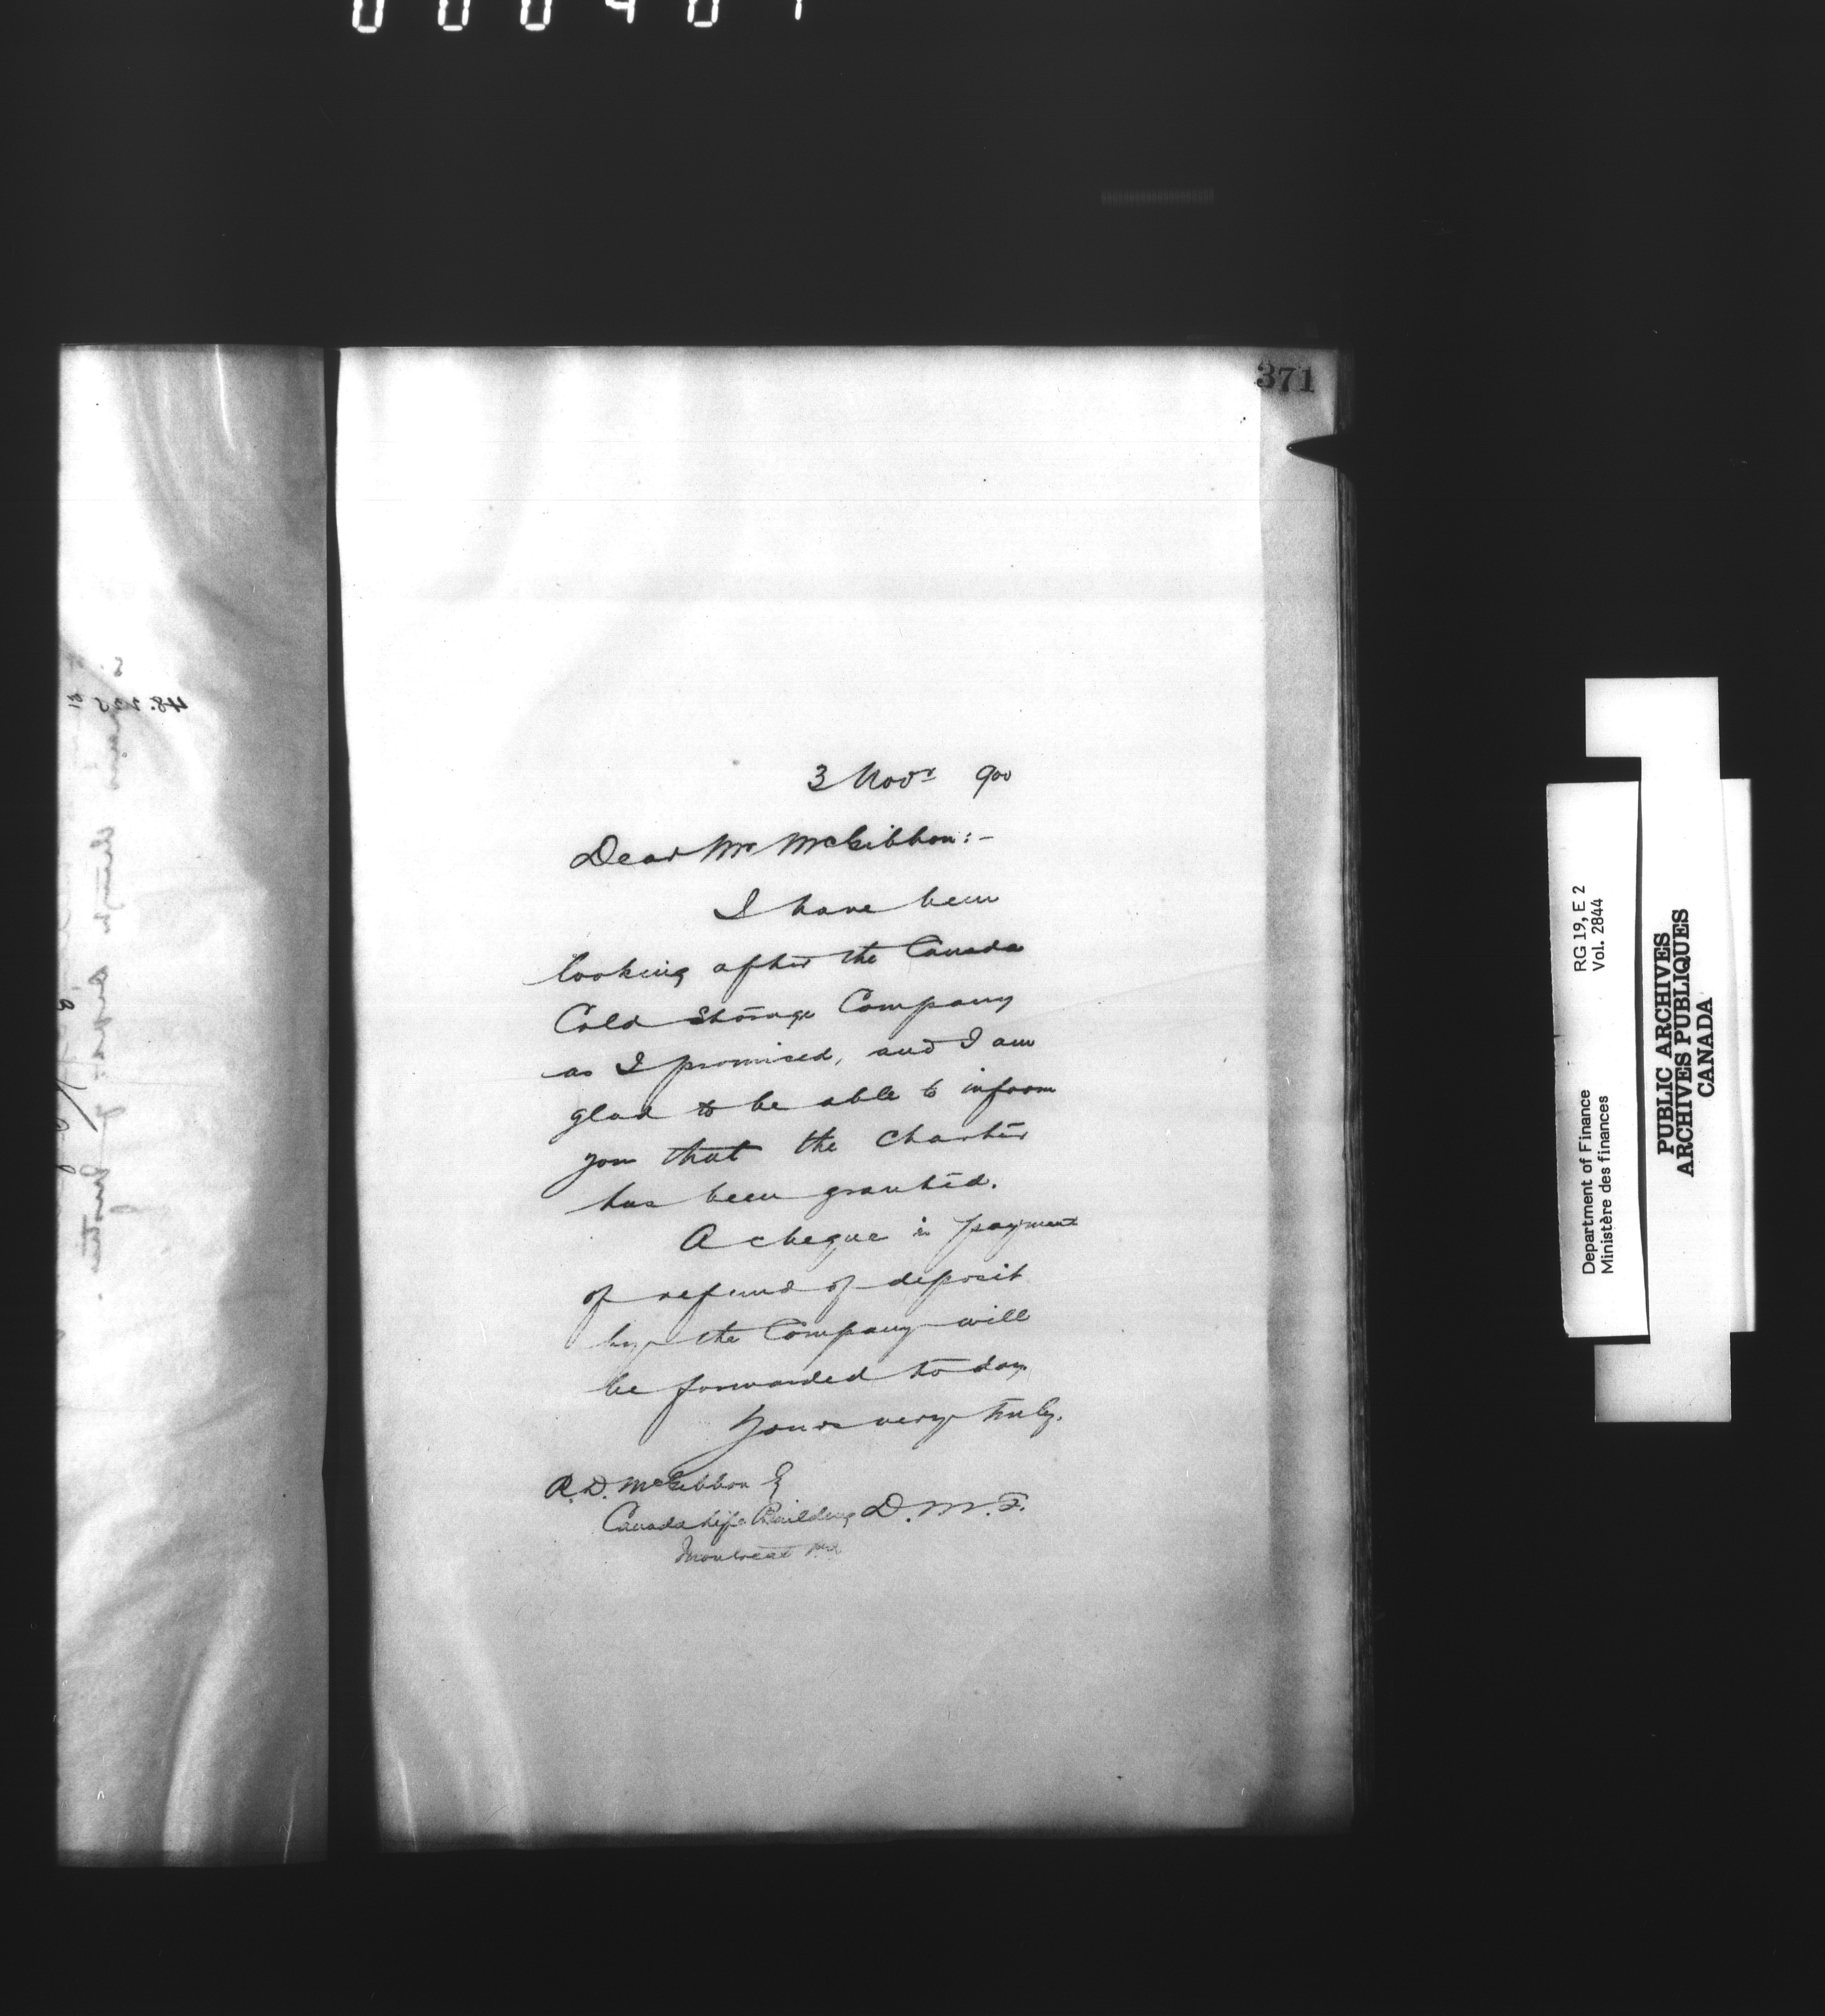 371
3 Novr 900
Dear Mr McGibbon:-
I have been
looking after the Canada
Cold Storage Company
as I promised, and I am
glad to be able to inform
you that the Charter
has been granted.
A cheque in payment
of refund of deposit
by the Company will
be forwarded to day
Yours very truly,
R. D. McGibbon Eq
Canada Life Building D. M. F.
Montreal
RG 19, E 2
Vol. 2844
Department of Finance
Ministère des finances
PUBLIC ARCHIVES
ARCHIVES PUBLIQUES
CANADA